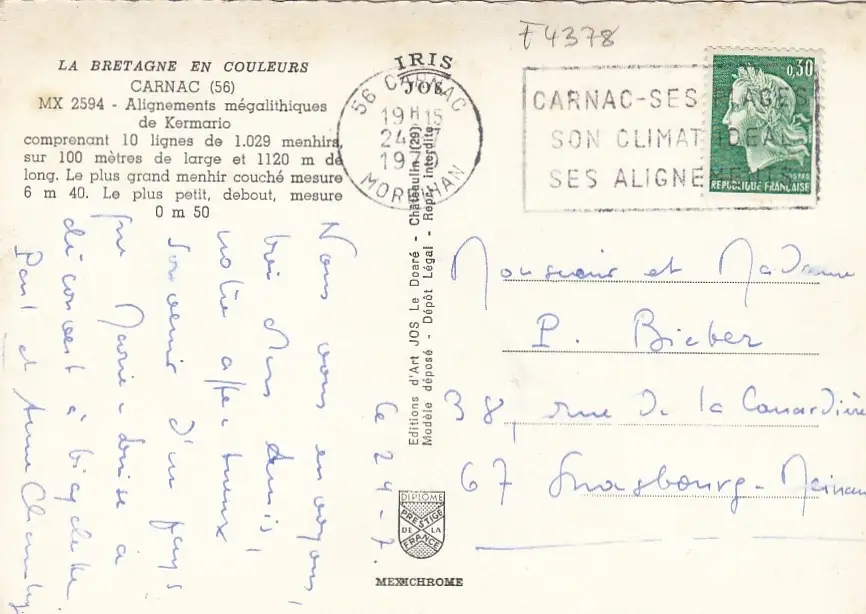 F4378
LA BRETAGNE EN COULEURS
CARNAC (56)
MX 2594 - Alignements mégalithiques
de Kermario
comprenant 10 lignes de 1.029 menhirs
sur 100 mètres de large et 1120 m de
long. Le plus grand menhir couché mesure
6 m 40. Le plus petit, debout, mesure
0 m 50
IRIS
JOS
56 CARNAC
19H15
24-7
1970
MORBIHAN
CARNAC-SES PLAGES
SON CLIMAT IDEAL
SES ALIGNEMENTS
0,30
POSTES
REPUBLIQUE FRANÇAISE
Editions d'Art JOS Le Doaré - Châteaulin (29)
Modèle déposé - Dépôt Légal - Repr. interdite
Le 24-7.
Nous vous envoyons,
chers amis,
notre affectueux
souvenir d'un pays
que Marie-Louise a
découvert à bicyclette
Paul et Anne
Monsieur et Madame
P. Bieber
38, rue de la Canardière
67 Strasbourg - Meinau
DIPLOME
PRESTIGE
DE LA
FRANCE
MEXICHROME